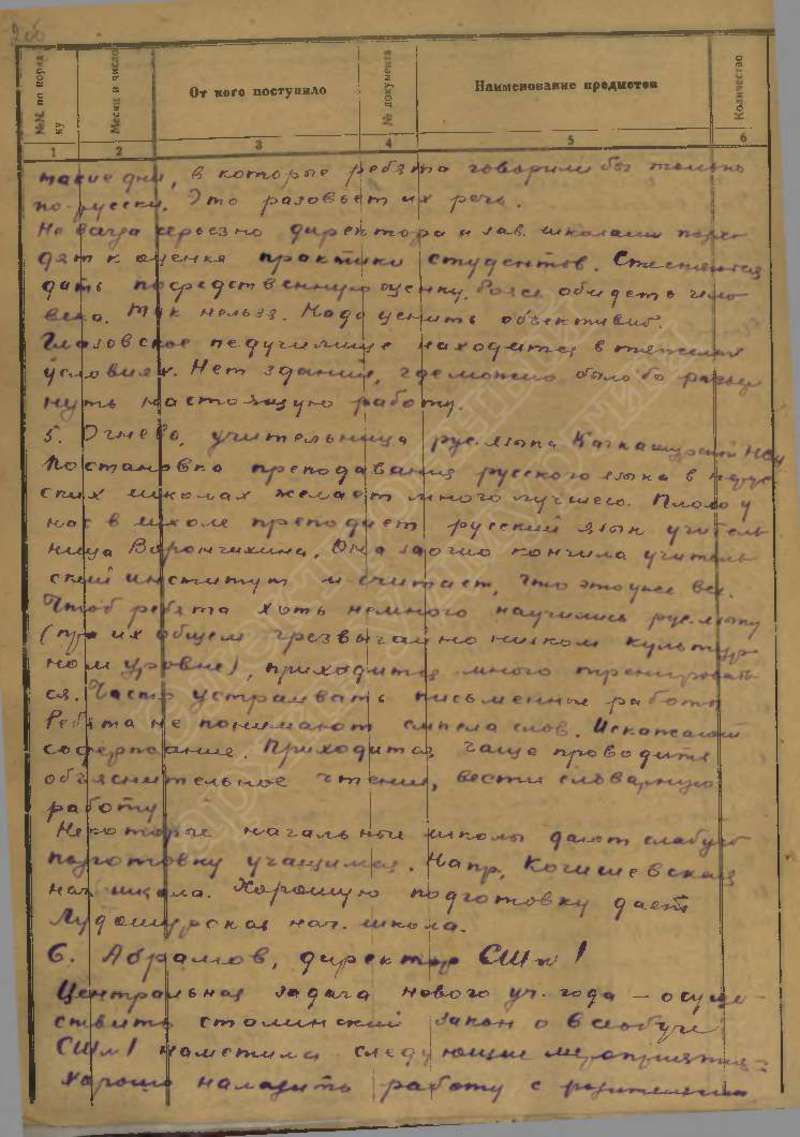 206
№№ по поряд ку
Месяц и число
От кого поступило
№ документа
Наименование предметов
Количество
1 2 3 4 5 6
такие дни, в которые ребята говорили бы только
по-русски. Это разовьет их речь.
Не всегда серьезно директора и зав. школами подхо-
дят к оценке практики студентов. Стесняются
дать посредственную оценку. Боязь обидеть чело-
века. Так нельзя. Надо ценить объективно.
Глазовское педучилище находится в тяжелых
условиях. Нет здания, где можно было бы развер
нуть настоящую работу.
5. Огнева, учительница рус. языка Качкашурской
Постановка преподавания русского языка в
ских школах желает много лучшего. Плохо у
нас в школе преподает русский язык учитель
ница Ворончихина. Она заочно кончила учитель
ский институт и считает, что это уже все.
Чтоб ребята хоть немного научились рус. языку
(при их общем чрезвычайно низком культур
ном уровне), приходится много тренировать
ся. Часто устраивать письменные работы
Ребята не понимают смысла слов. Искажают
содержание. Приходится чаще проводить
объяснительное чтение, вести словарную
работу
Некоторые начальные школы дают слабую
подготовку учащимся. Напр, Кочишевская
нач. школа. Хорошую подготовку дает
Лудошурская нач. школа.
6. Абрамов, директор СШ № 1
Центральная задача нового уч. года – осуще-
ствить сталинский закон о всеобуче
СШ № 1 наметила следующие мероприятия:
Хорошо наладить работу с родителями